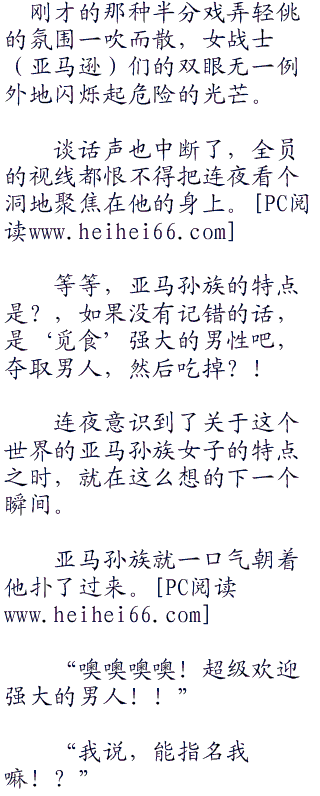 刚才的那种半分戏弄轻佻
的氛围一吹而散，女战士
（亚马逊）们的双眼无一例
外地闪烁起危险的光芒。
谈话声也中断了，全员
的视线都恨不得把连夜看个
洞地聚焦在他的身上。[PC阅
读www.heihei66.com]
等等，亚马孙族的特点
是？，如果没有记错的话，
是‘觅食’强大的男性吧，
夺取男人，然后吃掉？！
连夜意识到了关于这个
世界的亚马孙族女子的特点
之时，就在这么想的下一个
瞬间。
亚马孙族就一口气朝着
他扑了过来。[PC阅读
www.heihei66.com]
“噢噢噢噢！超级欢迎
强大的男人！！”
“我说，能指名我
嘛！？”